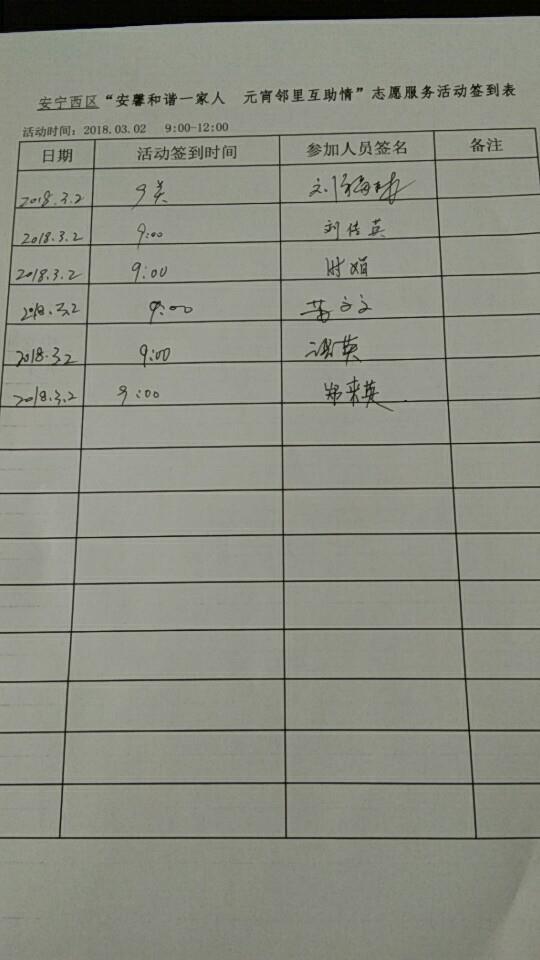 安宁西区“安馨和谐一家人 元宵邻里互助情”志愿服务活动签到表
活动时间：2018.03.02 9:00-12:00
日期 活动签到时间 参加人员签名 备注
2018.3.2 9点
2018.3.2 9:00 刘传英
2018.3.2 9:00 时娟
2018.3.2 9:00 文文
2018.3.2 9:00 英
2018.3.2 9:00 郑来英